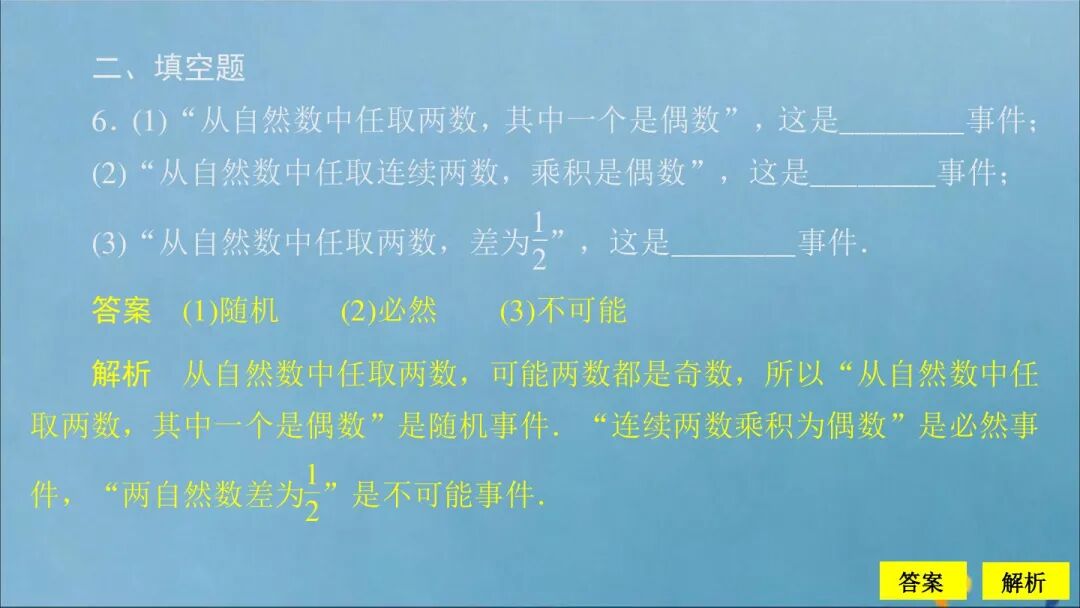 二、填空题
6．(1)“从自然数中任取两数，其中一个是偶数”，这是________事件；
(2)“从自然数中任取连续两数，乘积是偶数”，这是________事件；
(3)“从自然数中任取两数，差为1/2”，这是________事件．
答案 (1)随机 (2)必然 (3)不可能
解析 从自然数中任取两数，可能两数都是奇数，所以“从自然数中任
取两数，其中一个是偶数”是随机事件．“连续两数乘积为偶数”是必然事
件，“两自然数差为1/2”是不可能事件．
答案 解析